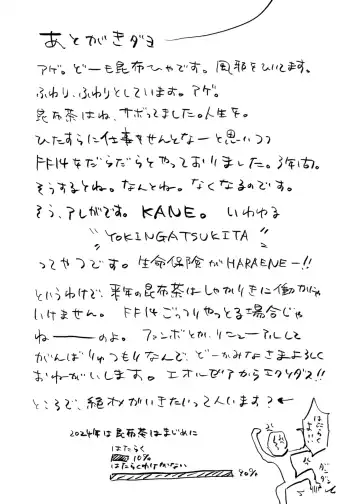 あとがきダヨ
アゲ。どーも昆布ひゃです。風邪をひいてます。
ふわり、ふわりとしています。アゲ。
昆布茶はね、サボってました。人生を。
ひたすらに仕事をせんとなーと思いつつ
FF14をだらだらとやっておりました。3年間。
そうするとね。なんとね。なくなるのです。
そう、アレがです。KANE。いわゆる
"YOKINGATSUKITA"
ってやつです。生命保険がHARAENEー!!
というわけで、来年の昆布茶はしっかりきに働かにゃ
いけません。FF14ごっつりやっとる場合じゃ
ねーーーのよ。ファンボとか、リニューアルして
がんばりゅつもりなんで、どーかみなさまよろしく
おねがいします。エオルゼアからエクソダス!!
ところで、絶オメガいきたいって人います?←
2024年は昆布茶はまじめに
はたらく
10%
はたらくわけがない
90%
はたらく
よ!!